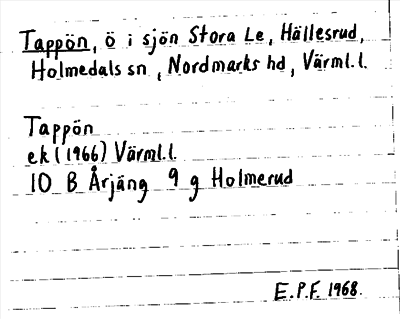 Tappön, ö i sjön Stora Le, Hällesrud,
Holmedals sn, Nordmarks hd, Värml.l.
Tappön
ek (1966) Värml.l.
10 B Årjäng 9 g Holmerud
E.P.F. 1968.